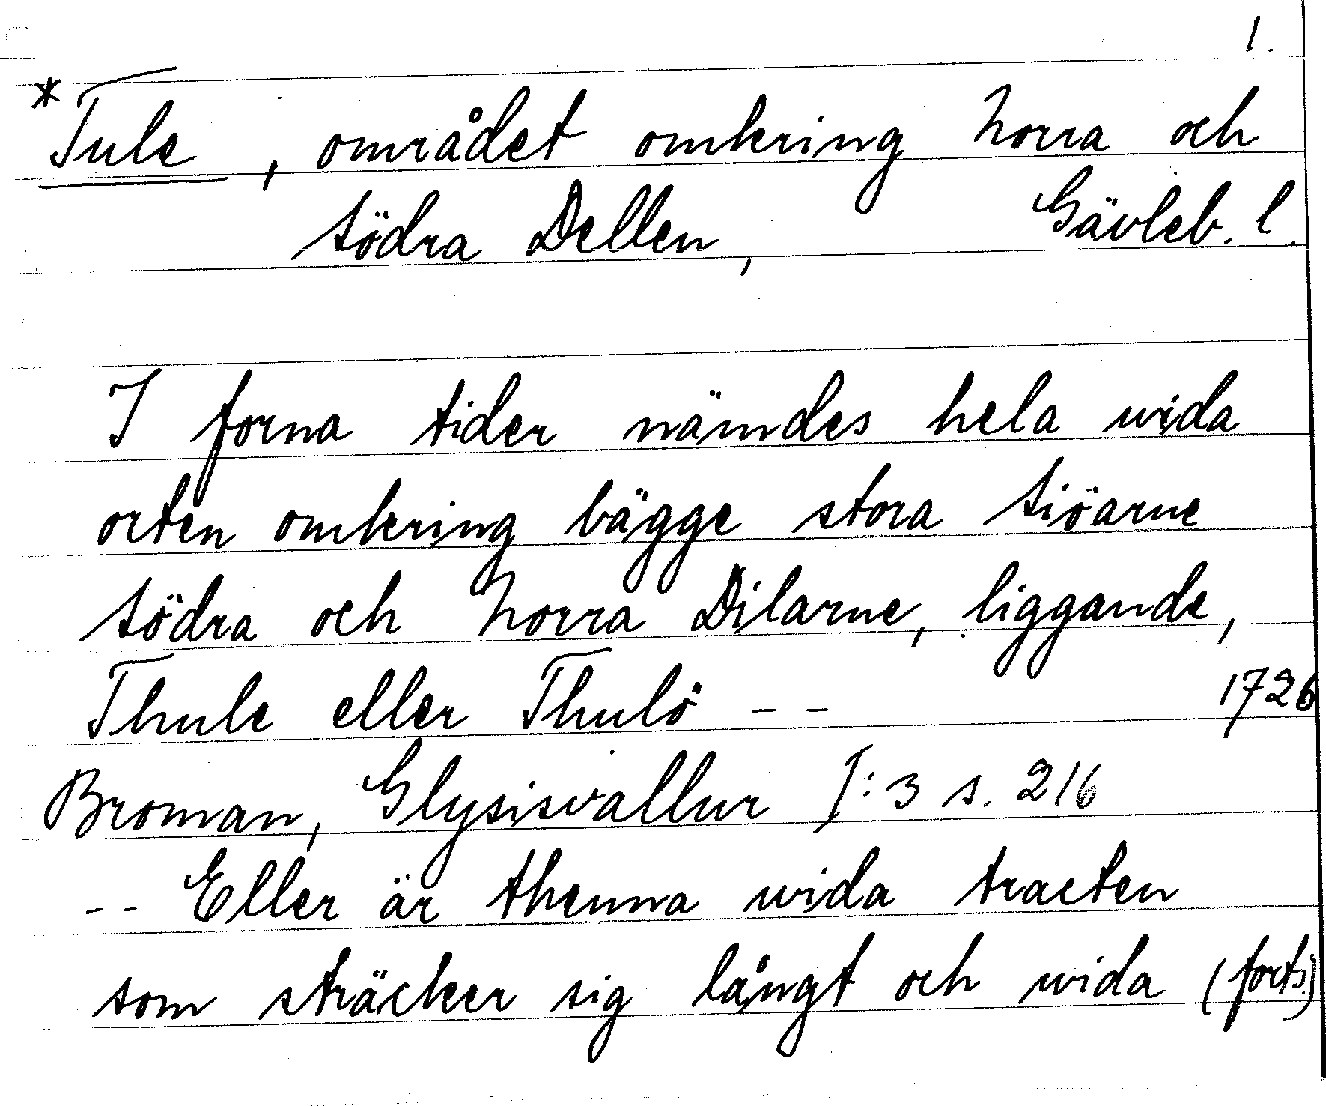 1.
*Tule, området omkring Norra och
Södra Dellen, Gävleb. l.
I forna tider nämdes hela wida
orten omkring bägge stora Siöarne
Södra och Norra Dilarne, liggande,
Thule eller Thulö -- 1726
Broman, Glysisvallur I:3 s. 216
-- Eller är thenna wida tracten
som sträcker sig långt och wida (forts.)